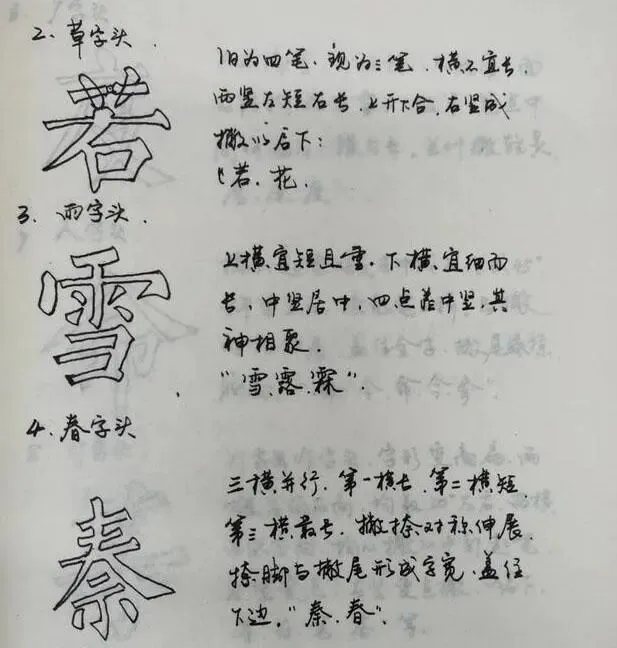 2. 草字头.
旧为四笔.现为三笔.横不宜长.
两竖左短右长.上开下合.右竖成
撇心居下:
若.花.
若
3. 雨字头.
上横宜短且重.下横宜细而
长.中竖居中.四点靠中竖.其
神相聚.
"雪.露.霖".
雪
4. 春字头
三横并行.第一横长.第二横短.
第三横最长.撇捺对称伸展.
捺脚与撇尾形成字宽.盖住
下边."秦.春".
秦